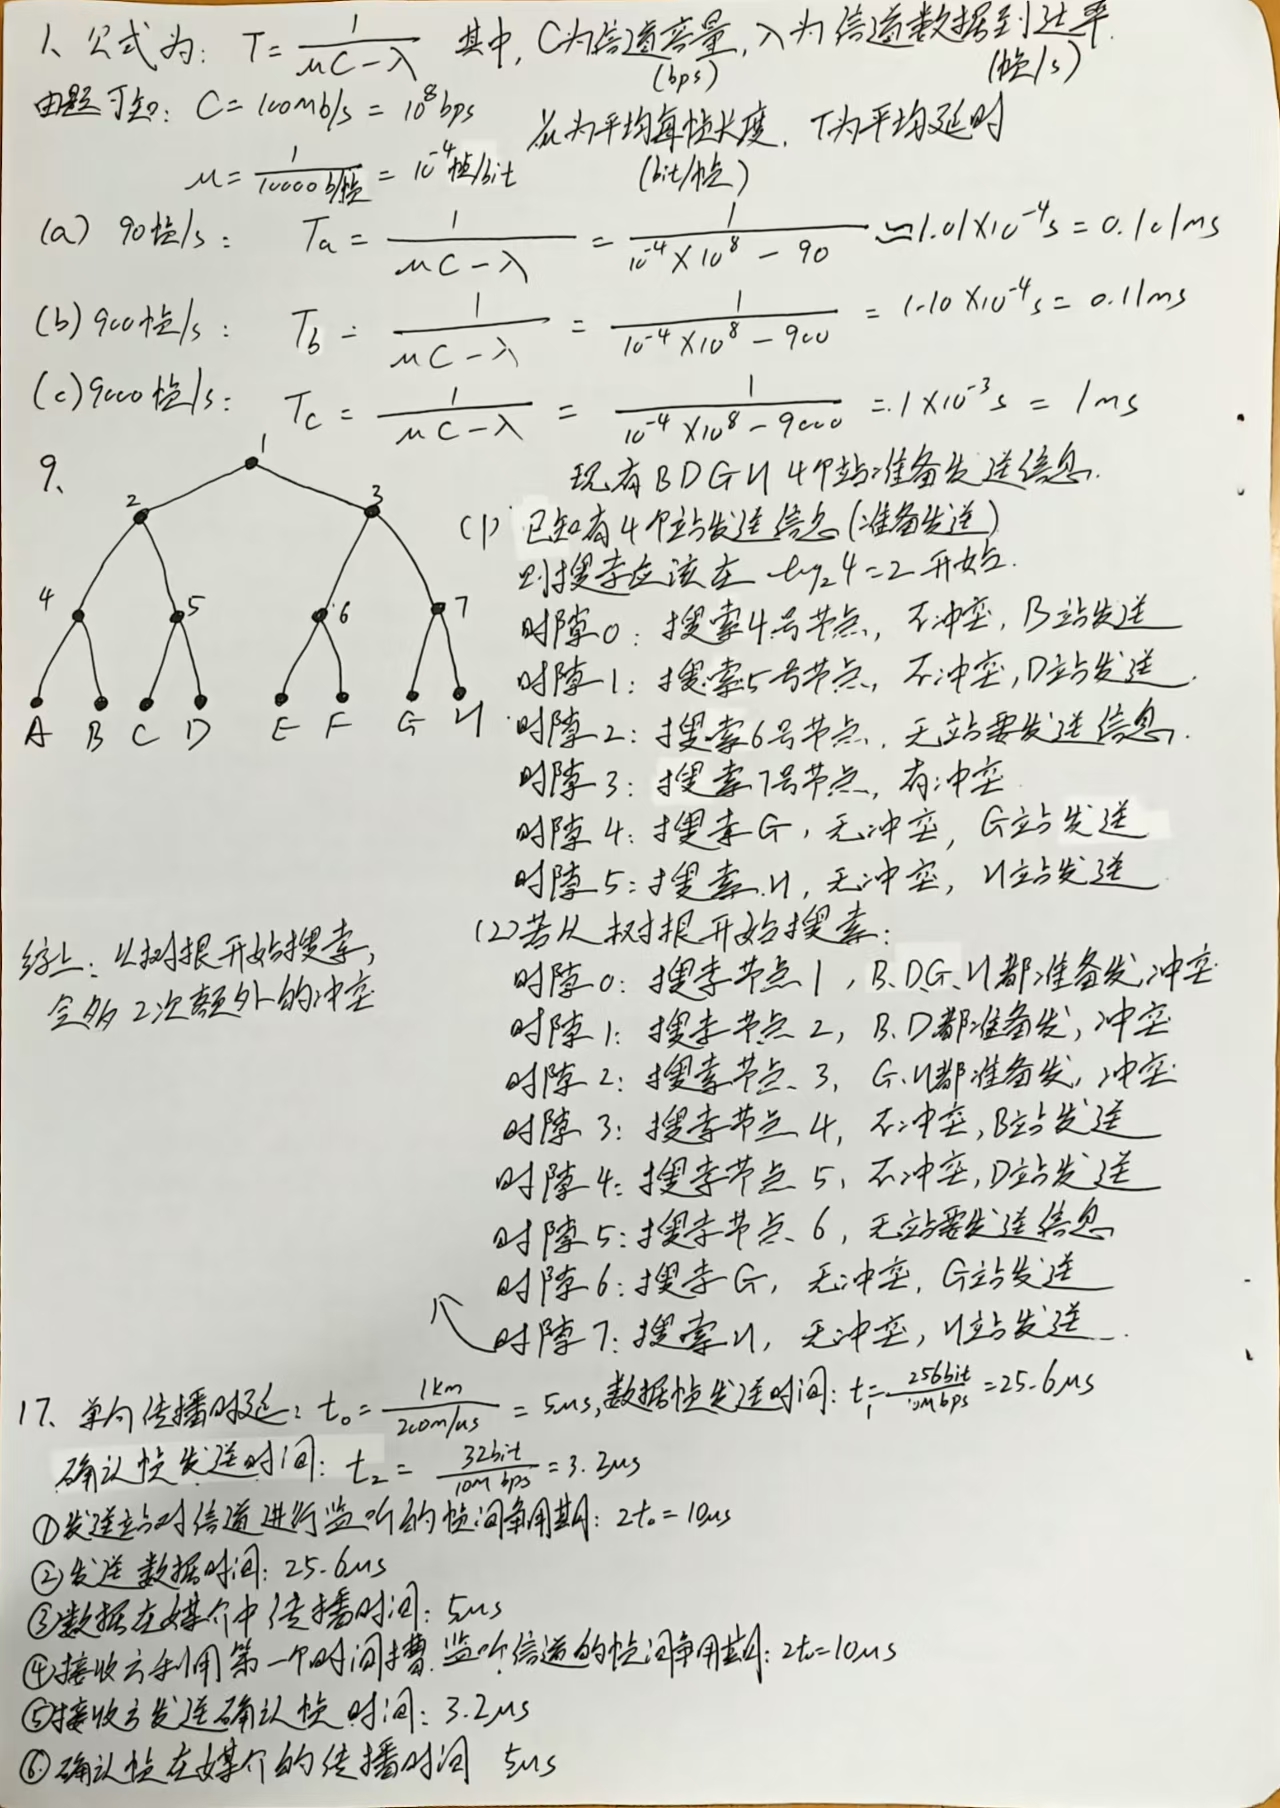 1、公式为: T = 1/(μC-λ) 其中, C为信道容量, λ为信道数据到达率.
(bps) (帧/s)
由题可知: C = 100Mb/s = 10⁸bps 1/μ为平均每帧长度, T为平均延时
μ = 1/(10000b/帧) = 10⁻⁴帧/bit (bit/帧)
(a) 90帧/s: Ta = 1/(μC-λ) = 1/(10⁻⁴×10⁸-90) ≈1.01×10⁻⁴s = 0.101ms
(b) 900帧/s: Tb = 1/(μC-λ) = 1/(10⁻⁴×10⁸-900) = 1.10×10⁻⁴s = 0.11ms
(c) 9000帧/s: Tc = 1/(μC-λ) = 1/(10⁻⁴×10⁸-9000) = 1×10⁻³s = 1ms
9、
1
2 3
4 5 6 7
A B C D E F G H
现有BDGH 4个站准备发送信息.
(1) 已知有4个站发送信息(准备发送)
则搜索应该在 log₂4=2 开始.
时隙0: 搜索4号节点, 不冲突, B站发送
时隙1: 搜索5号节点, 不冲突, D站发送.
时隙2: 搜索6号节点, 无站要发送信息.
时隙3: 搜索7号节点, 有冲突
时隙4: 搜索G, 无冲突, G站发送
时隙5: 搜索H, 无冲突, H站发送
(2)若从树根开始搜索:
时隙0: 搜索节点1, B.D.G.H都准备发,冲突
时隙1: 搜索节点2, B.D都准备发, 冲突
时隙2: 搜索节点3, G.H都准备发, 冲突
时隙3: 搜索节点4, 不冲突, B站发送
时隙4: 搜索节点5, 不冲突, D站发送
时隙5: 搜索节点6, 无站要发送信息
时隙6: 搜索G, 无冲突, G站发送
时隙7: 搜索H, 无冲突, H站发送.
综上: 从树根开始搜索,
会多2次额外的冲突
17、单向传播时延: t₀ = 1km/(200m/μs) = 5μs, 数据帧发送时间: t₁ = 256bit/10Mbps = 25.6μs
确认帧发送时间: t₂ = 32bit/10Mbps = 3.2μs
①发送站对信道进行监听的帧间争用期: 2t₀ = 10μs
②发送数据时间: 25.6μs
③数据在媒介中传播时间: 5μs
④接收方利用第一个时间槽监听信道的帧间争用期: 2t₀=10μs
⑤接收方发送确认帧时间: 3.2μs
⑥确认帧在媒介的传播时间 5μs